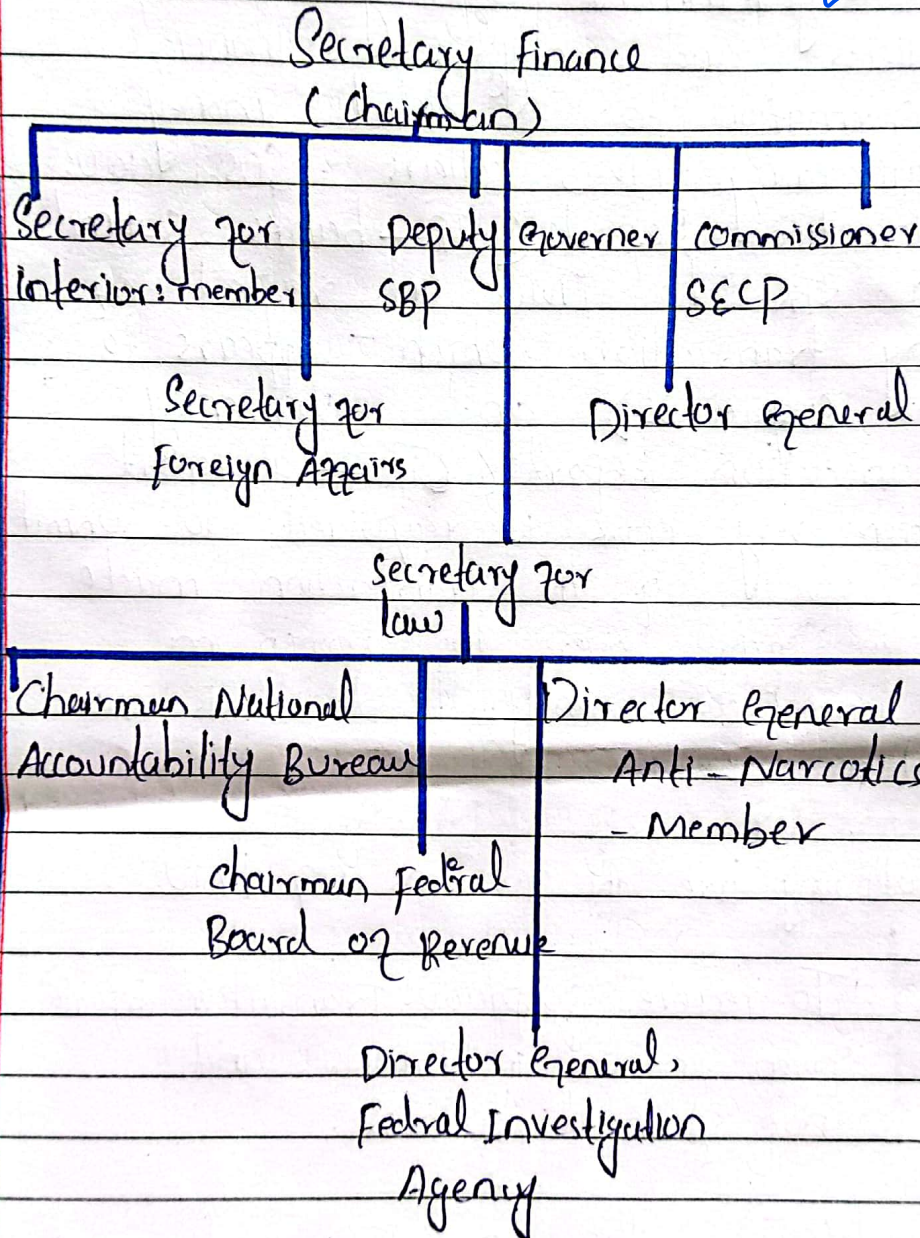 Secretary Finance
(Chairman)
Secretary for
interior: member
Deputy Governer
SBP
Commissioner
SECP
Secretary for
Foreign Affairs
Director General
Secretary for
law
Chairman National
Accountability Bureau
Director General
Anti-Narcotics
- Member
Chairman Federal
Board of Revenue
Director General,
Fedral Investigation
Agency